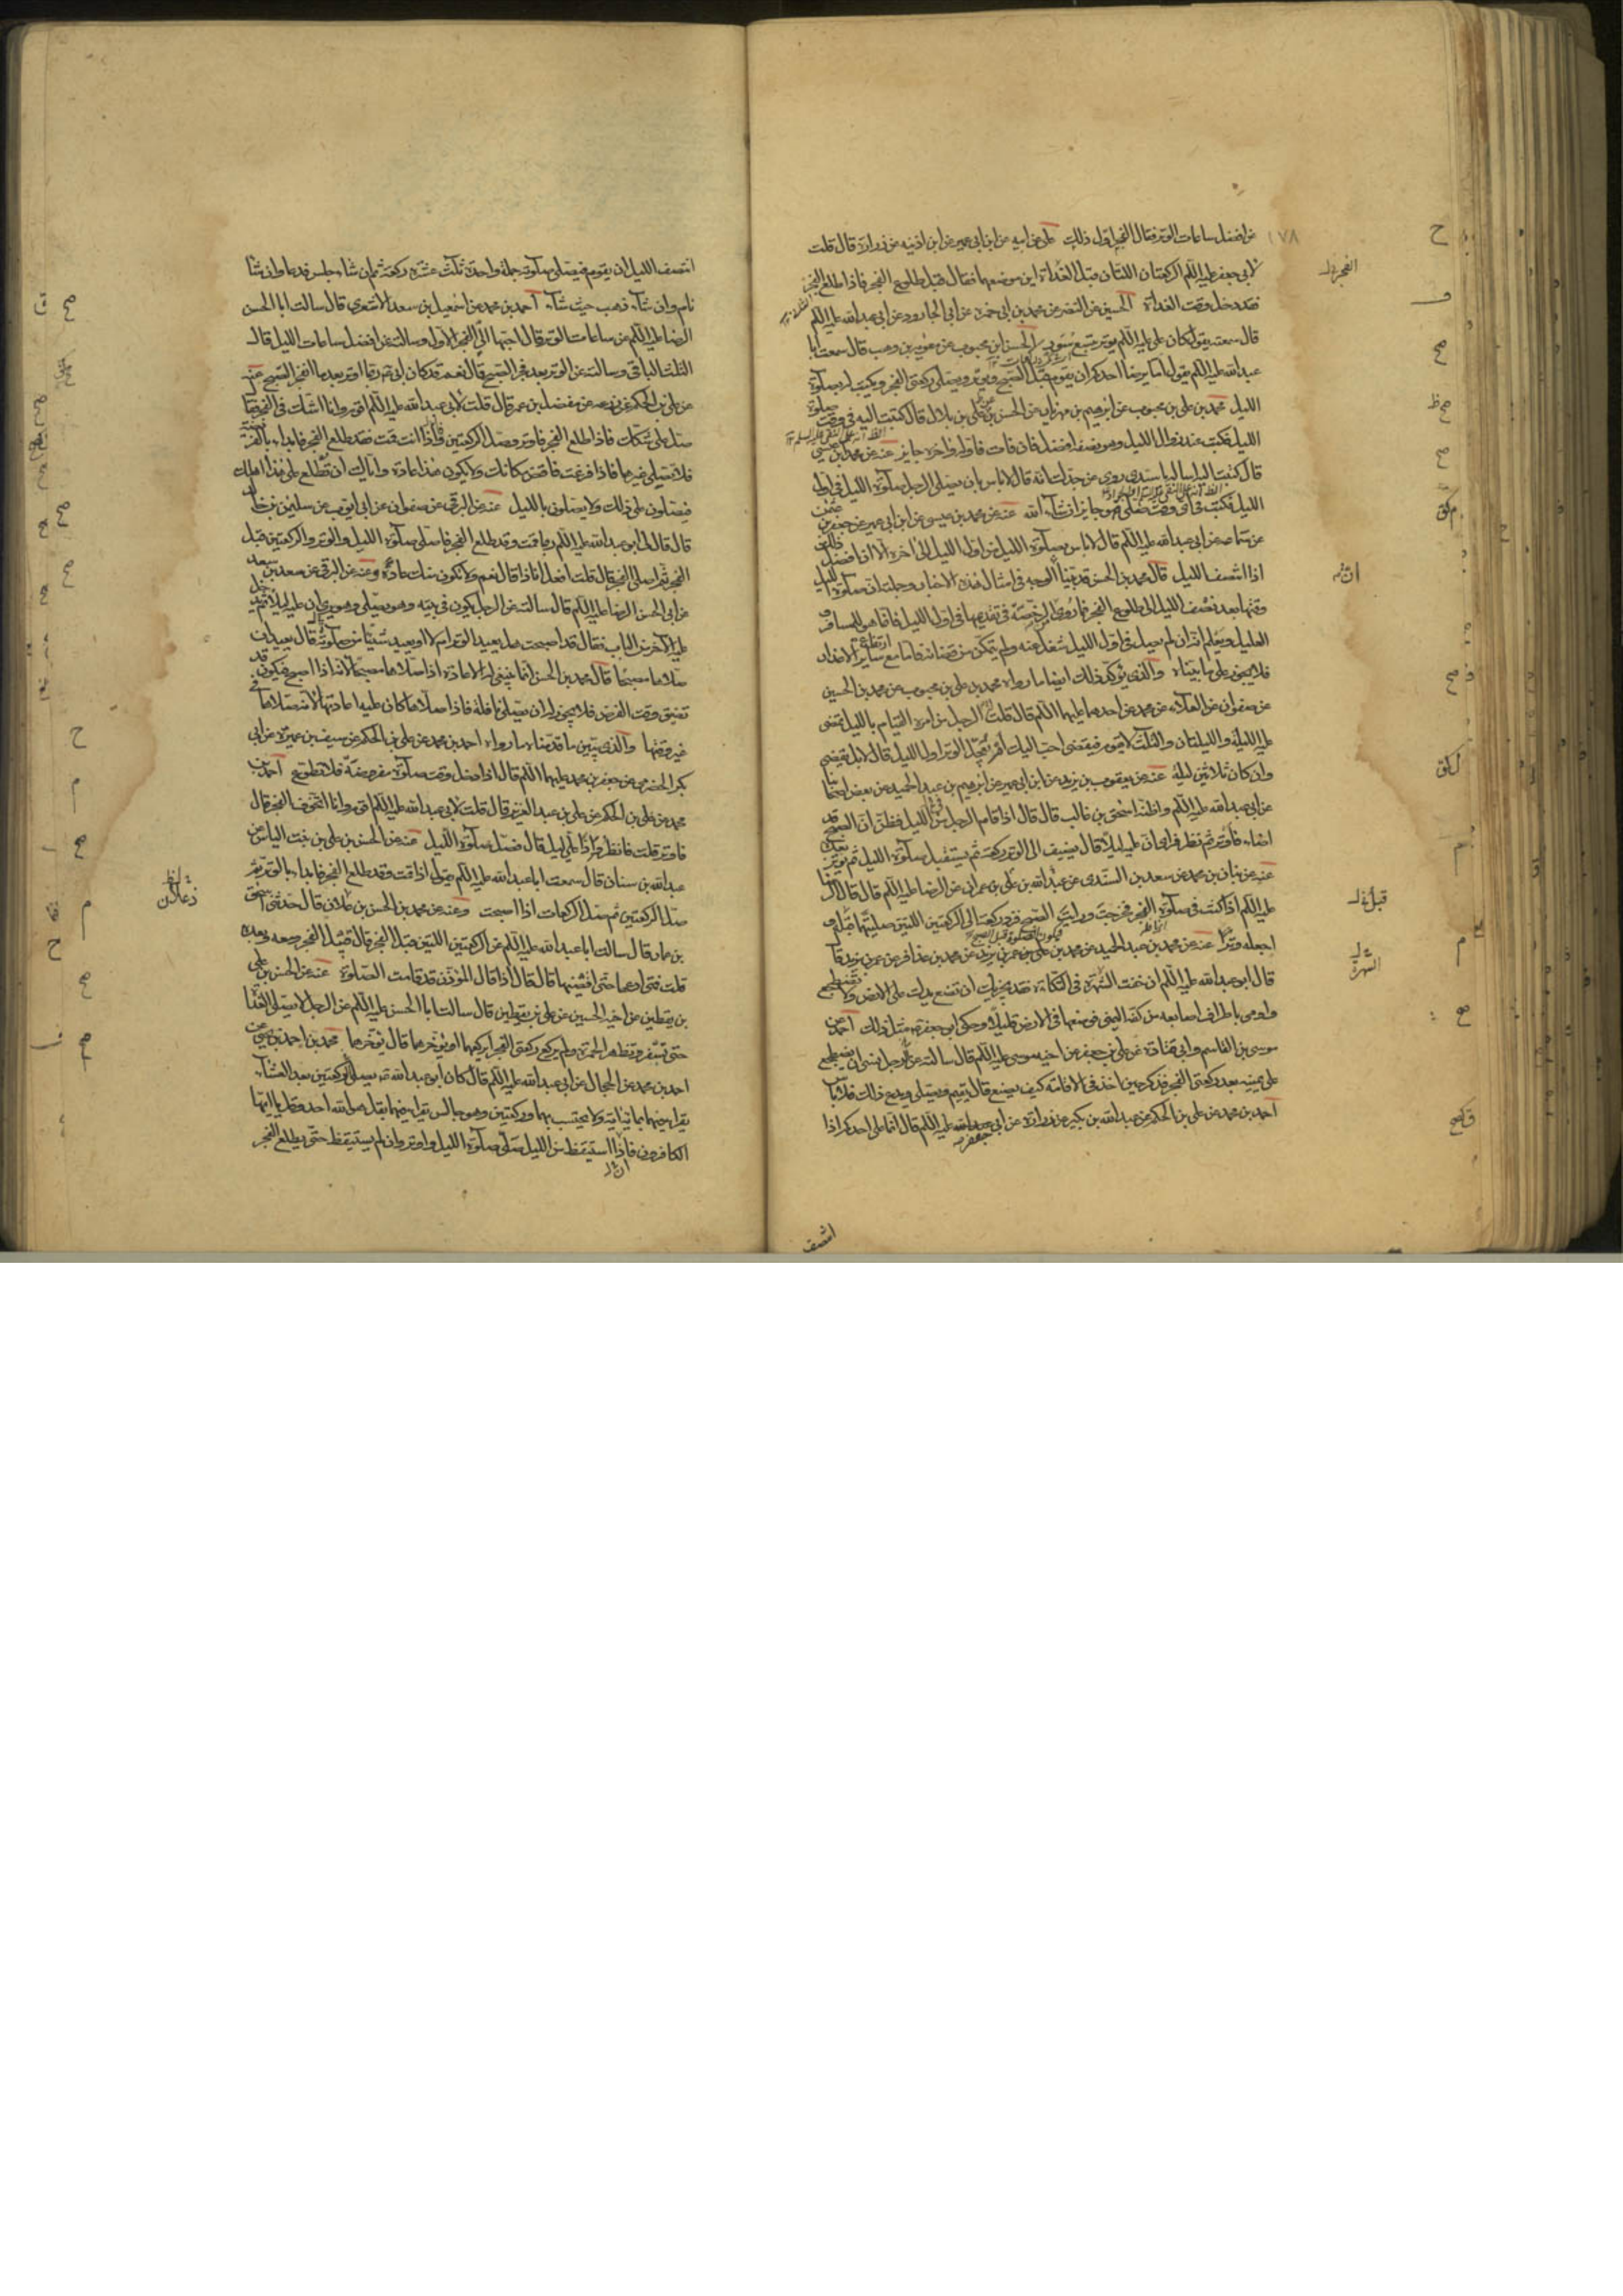 من افضل ساعات الوتر فقال الفجر اول ذلك علی عن ابیه عن ابن ابی عمیر عن ابن اذینه عن زرارة قال قلت
لابی جعفر علیه السلم الرکعتان اللتان قبل الغداة این موضعهما فقال قبل طلوع الفجر فاذا طلع الفجر
فقد دخل وقت الغداة الحسین عن النضر عن محمد بن ابی حمزه عن ابی الجارود عن ابی عبدالله علیه السلم
قال سمعته یقول کان علی علیه السلم یوتر بتسع سور الحسن بن محبوب عن معویة بن وهب قال سمعت ابا
عبدالله علیه السلم یقول اما یرضا احدکم ان یقوم قبل الصبح ویوتر ویصلی رکعتی الفجر ویکتب له بصلوة
اللیل محمد بن علی بن محبوب عن ابرهیم بن مهزیار عن الحسین بن علی بن بلال قال کتبت الیه فی وقت صلوة
اللیل فکتب عند زوال اللیل وهو نصفه افضل فان فات فاوله واخره جایز عنه عن محمد بن عیسی
قال کتبت الیه اساله یا سیدی روی عن جدک انه قال لاباس بان یصلی الرجل صلوة اللیل فی اول
اللیل فکتب فی ای وقت صلی فهو جایز ان شاء الله عنه عن محمد بن عیسی عن ابن ابی عمیر عن جعفر بن عثمن
عن سماعه عن ابی عبدالله علیه السلم قال لاباس بصلوة اللیل من اول اللیل الی اخره الا ان افضل ذلک
اذا انتصف اللیل قال محمد بن الحسن قد بینا الوجه فی امثال هذه الاخبار وجملته ان صلوة اللیل
وقتها بعد نصف اللیل الی طلوع الفجر وما روی الرخصة فی تقدیمها فی اول اللیل فانما هو للمسافر و
العلیل ویعلم انه ان لم یصل فی اول اللیل شغل عنه ولم یتمکن من قضائه فاما مع ارتفاع سایر الاعذار
فلا یجوز علی ما بیناه والذی یؤکد ذلک ایضا ما رواه محمد بن علی بن محبوب عن محمد بن الحسین
عن صفوان عن العلاء عن محمد عن احدهما علیهما السلم قال قلت الرجل من امره القیام باللیل تمضی
علیه اللیلة واللیلتان والثلث لا یقوم فیقضی احب الیک ام یعجل الوتر اول اللیل قال لا بل یقضی
وان کان ثلاثین لیلة عنه عن یعقوب بن یزید عن ابن ابی عمیر عن ابرهیم بن عبد الحمید عن بعض اصحابنا
عن ابی عبدالله علیه السلم واظنه اسحق بن غالب قال قال اذا قام الرجل من اللیل فظن ان الصبح قد
اضاء فاوتر ثم نظر فرای ان علیه لیلا قال یضیف الی الوتر رکعة ثم یستقبل صلوة اللیل ثم یوتر بعده
عنه عن بنان بن محمد عن سعد بن السندی عن عبدالله بن علی بن عمران عن الرضا علیه السلم قال قال
علیه السلم اذا کنت فی صلوة الفجر فخرجت ورایت الصبح فزد رکعة الی الرکعتین اللتین صلیتهما قبل و
اجعله وترا عنه عن محمد بن عبد الحمید عن محمد بن علی بن عمر بن یزید عن محمد بن عذافر عن عمر بن یزید قال
قال ابو عبدالله علیه السلم ان خفت الشهرة فی التکاءة فقد یجزیک ان تضع یدک علی الارض ولا تضطجع
واومی باطراف اصابعه من کفه الیمنی فوضعها فی الارض قلیلا وحکی ابو جعفر مثل ذلک احمد عن
موسی بن القاسم وابی قتادة عن علی بن جعفر عن اخیه موسی علیه السلم قال سالته عن رجل نسی ان یضطجع
علی یمینه بعد رکعتی الفجر فذکر حین اخذ فی الاقامة کیف یصنع قال یقیم ویصلی ویدع ذلک فلا باس
احمد بن محمد عن علی بن الحکم عن عبدالله بن بکیر عن زرارة عن ابی عبدالله علیه السلم قال انما علی احدکم اذا
جعفر
انتصف
١٧٨
انتصف اللیل ان یقوم فیصلی صلوته جملة واحدة ثلث عشرة رکعة ثم ان شاء جلس فدعا وان شا
نام وان شاء ذهب حیث شاء احمد بن محمد عن اسمعیل بن سعد الاشعری قال سالت ابا الحسن
الرضا علیه السلم عن ساعات الوتر قال احبها الی الفجر الاول وسالته عن افضل ساعات اللیل قال
الثلث الباقی وسالته عن الوتر بعد فجر الصبح قال نعم قد کان ابی ربما اوتر بعد ما انفجر الصبح عنه
عن علی بن الحکم عن زرعه عن مفضل بن عمر قال قلت لابی عبدالله علیه السلم اقوم وانا اشک فی الفجر فقال
صل علی شکک فاذا طلع الفجر فاوتر وصل الرکعتین فاذا انت قمت وقد طلع الفجر فابداء بالفریضة
فلا تصلی غیرها فاذا فرغت فاقض ما فاتک ولا یکون هذا عادة وایاک ان تطلع علی هذا اهلک
فیصلون علی ذلک ولا یصلون باللیل عنه عن البرقی عن صفوان عن ابی ایوب عن سلیمن بن خالد
قال قال لی ابو عبدالله علیه السلم ربما قمت وقد طلع الفجر فاصلی صلوة اللیل والوتر والرکعتین قبل
الفجر ثم اصلی الفجر قال قلت افعل انا ذا قال نعم ولا یکون منک عادة وعنه عن البرقی عن سعد بن سعد
عن ابی الحسن الرضا علیه السلم قال سالته عن الرجل یکون فی بیته وهو یصلی وهو یری ان علیه لیلا ثم یدخل
علیه الآخر من الباب فقال قد اصبحت هل یعید الوتر ام لا او یعید شیئا من صلوته قال یعید ان
صلاها مصبحا قال محمد بن الحسن انما ینبغی له الاعادة اذا صلاها مصبحا لانه اذا اصبح فیکون قد
تضیق وقت الفرض فلا یجوز له ان یصلی نافلة فاذا صلاها کان علیه اعادتها لانه صلاها فی
غیر وقتها والذی یبین ما قدمناه ما رواه احمد بن محمد عن علی بن الحکم عن سیف بن عمیرة عن ابی
بکر الحضرمی عن جعفر بن محمد علیهما السلم قال اذا دخل وقت صلوة مفروضة فلا تطوع احمد بن
محمد عن علی بن الحکم عن علی بن عبد العزیز قال قلت لابی عبدالله علیه السلم اقوم وانا اتخوف الفجر قال
فاوتر قلت فانظر واذا علی لیل قال فصل صلوة اللیل عنه عن الحسن بن علی بن بنت الیاس عن
عبدالله بن سنان قال سمعت ابا عبدالله علیه السلم یقول اذا قمت وقد طلع الفجر فابداء بالوتر ثم
صل الرکعتین ثم صل الرکعات اذا اصبحت وعنه عن محمد بن الحسن بن علان قال حدثنی اسحق
بن عمار قال سالت ابا عبدالله علیه السلم عن الرکعتین اللتین قبل الفجر قال قبیل الفجر ومعه وبعده
قلت فمتی ادعهما حتی اقضیهما قال قال اذا قال المؤذن قد قامت الصلوة عنه عن الحسن بن علی
بن یقطین عن اخیه الحسین عن علی بن یقطین قال سالت ابا الحسن علیه السلم عن الرجل لا یصلی الغداة
حتی تسفر وتظهر الحمرة ولم یرکع رکعتی الفجر ایرکعهما او یؤخرهما قال یؤخرهما محمد بن احمد بن یحیی عن
احمد بن محمد عن الحجال عن ابی عبدالله علیه السلم قال کان ابو عبدالله یصلی رکعتین بعد العشاء
یقرا فیهما بمائة آیة ولا یحتسب بهما ورکعتین وهو جالس یقرا فیهما بقل هو الله احد وقل یا ایها
الکافرون فاذا استیقظ من اللیل صلی صلوة اللیل واوتر وان لم یستیقظ حتی یطلع الفجر